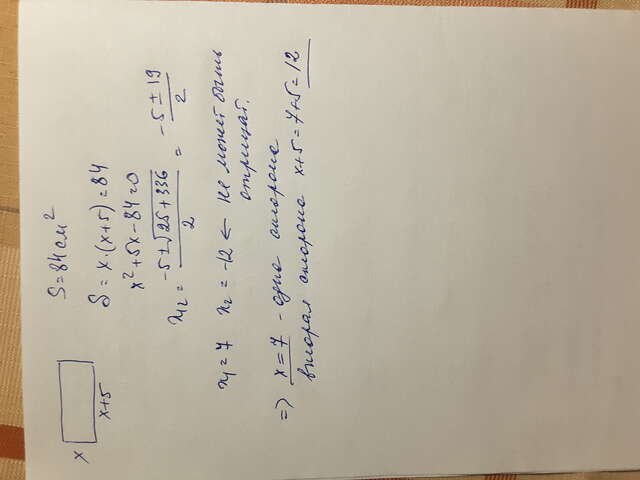 x
x+5
S = 84 см²
S = x·(x+5) = 84
x² + 5x - 84 = 0
x₁,₂ = (-5 ± √(25 + 336)) / 2 = (-5 ± 19) / 2
x₁ = 7 x₂ = -12 ← не может быть
отрицат.
=> x = 7 - одна сторона
вторая сторона x+5 = 7+5 = 12